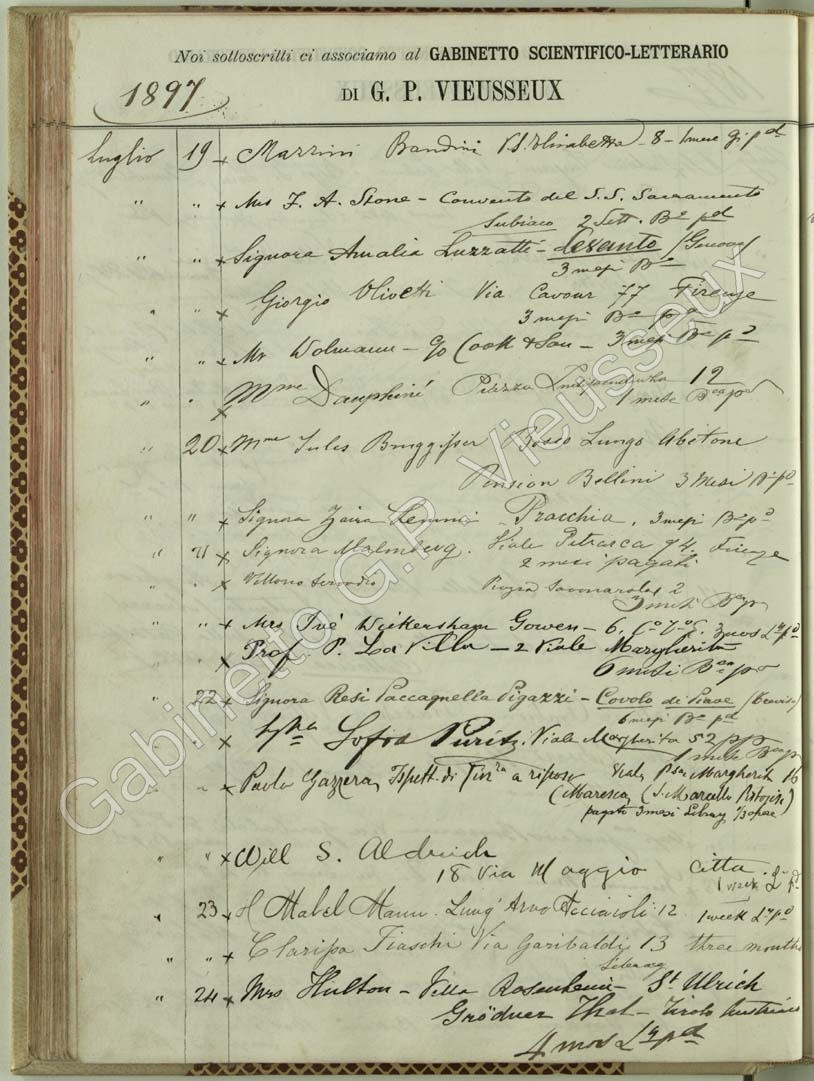 Noi sottoscritti ci associamo al GABINETTO SCIENTIFICO-LETTERARIO
1897
DI G. P. VIEUSSEUX
Luglio 19 x Mazzini Bandini V. S. Elisabetta - 8 - 1 mese pd
" " x Mrs F. A. Stone - Convento del S.S. Sacramento
Subiaco 2 Sett. Ba pd
" " x Signora Amalia Luzzatti - Levanto (Genova)
3 mesi Ba
" " x Giorgio Olivetti Via Cavour 77 Firenze
3 mesi Ba pd
" " x Mr Wolmann - c/o Cook & Son - 3 mesi Ba pd
" " x Mme Dauphiné Piazza Indipendenza 12
1 mese Bca pd
" 20 x Mme Jules Bruggisser Bosco Lungo Abetone
Pension Bellini 3 Mesi Ba pd
" " x Signora Zaira Lemmi - Pracchia, 3 mesi Ba pd
" 21 x Signora Malmberg. Viale Petrarca 74. Firenze
2 mesi pagati
" " x Vittorio Servadio Piazza Savonarola 2
3 mesi
" " x Mrs Ivé Wickersham Gowen - 6, 3 mos Ly pd
" " x Prof. P. La Villa - 2 Viale Margherita
6 mesi Bca pd
" 22 x Signora Resi Paccagnella Pigazzi - Covolo di Piave (Treviso)
6 mesi Ba pd
" " x Sofia Puritz. Viale Margherita 52 pp
1 mese
" " x Paolo Gazzera, Ispett. di a riposo Viale Pssa Margherita 16
(Maresca, (S. Marcello Pistoiese)
pagato 3 mesi Library 1/3 opere
" " x Will S. Aldrich
18 Via Maggio Citta.
1 week Ly pd
" 23 x H Mabel Mann. Lung'Arno Acciaioli 12 1 week Ly pd
" " x Clarissa Fiaschi Via Garibaldi 13 three months
Library
" 24 x Mrs Hulton - Villa Rosenheim - St Ulrich
Grödner Thal - Tirolo Austriaco
4 mos Ly pd
Gabinetto G.P. Vieusseux